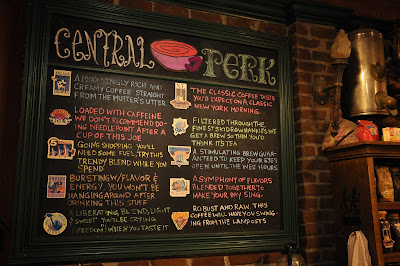 CENTRAL PERK
A MOO-VINGLY RICH AND
CREAMY COFFEE STRAIGHT
FROM THE MUTTER'S UTTER
LOADED WITH CAFFEINE
WE DON'T RECOMMEND DO-
ING NEEDLEPOINT AFTER A
CUP OF THIS JOE
GOING SHOPPING? YOU'LL
NEED SOME FUEL, TRY THIS
TRENDY BLEND WHILE YOU
SPEND
BURSTING W/FLAVOR &
ENERGY. YOU WON'T BE
HANGING AROUND AFTER
DRINKING THIS STUFF
A LIBERATING BLEND, LIGHT
SWEET YOU'LL BE CRYING
FREEDOM! WHEN YOU TASTE IT
THE CLASSIC COFFEE TASTE
YOU'D EXPECT ON A CLASSIC
NEW YORK MORNING.
FILTERED THROUGH THE
FINEST SKID ROW HANKIES WE
GET A BREW SO THIN YOU'D
THINK ITS TEA
A STIMULATING BREW GUAR-
ANTEED TO KEEP YOUR EYES
OPEN UNTIL THE WEE HOURS
A SYMPHONY OF FLAVORS
BLENDED TOGETHER TO
MAKE YOUR DAY SING-
ROBUST AND RAW. THIS
COFFEE WILL HAVE YOU SWING-
ING FROM THE LAMP POSTS